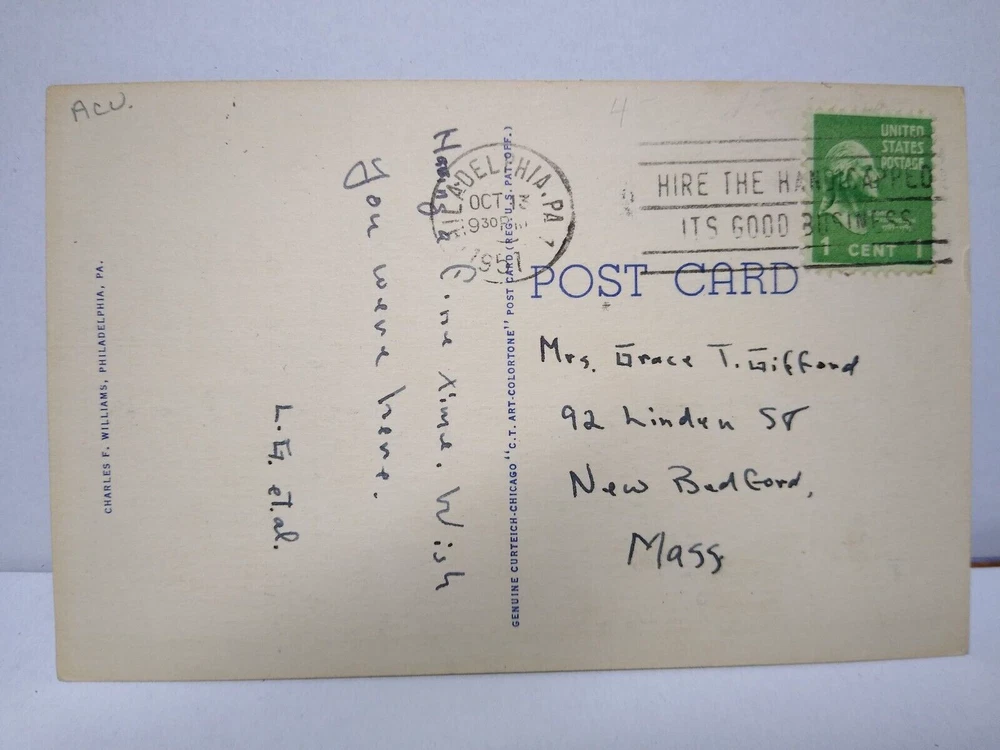 ACU.
4
UNITED
STATES
POSTAGE
HIRE THE HANDICAPPED
ITS GOOD BUSINESS
1 CENT 1
PHILADELPHIA, PA.
OCT
930 PM
1951
POST CARD
Mrs. Grace T. Gifford
92 Linden ST
New Bedford,
Mass
GENUINE CURTEICH-CHICAGO "C.T. ART-COLORTONE" POST CARD (REG. U.S. PAT. OFF.)
Having a Fine time. Wish
you were here.
L. G. et. al.
CHARLES F. WILLIAMS, PHILADELPHIA, PA.